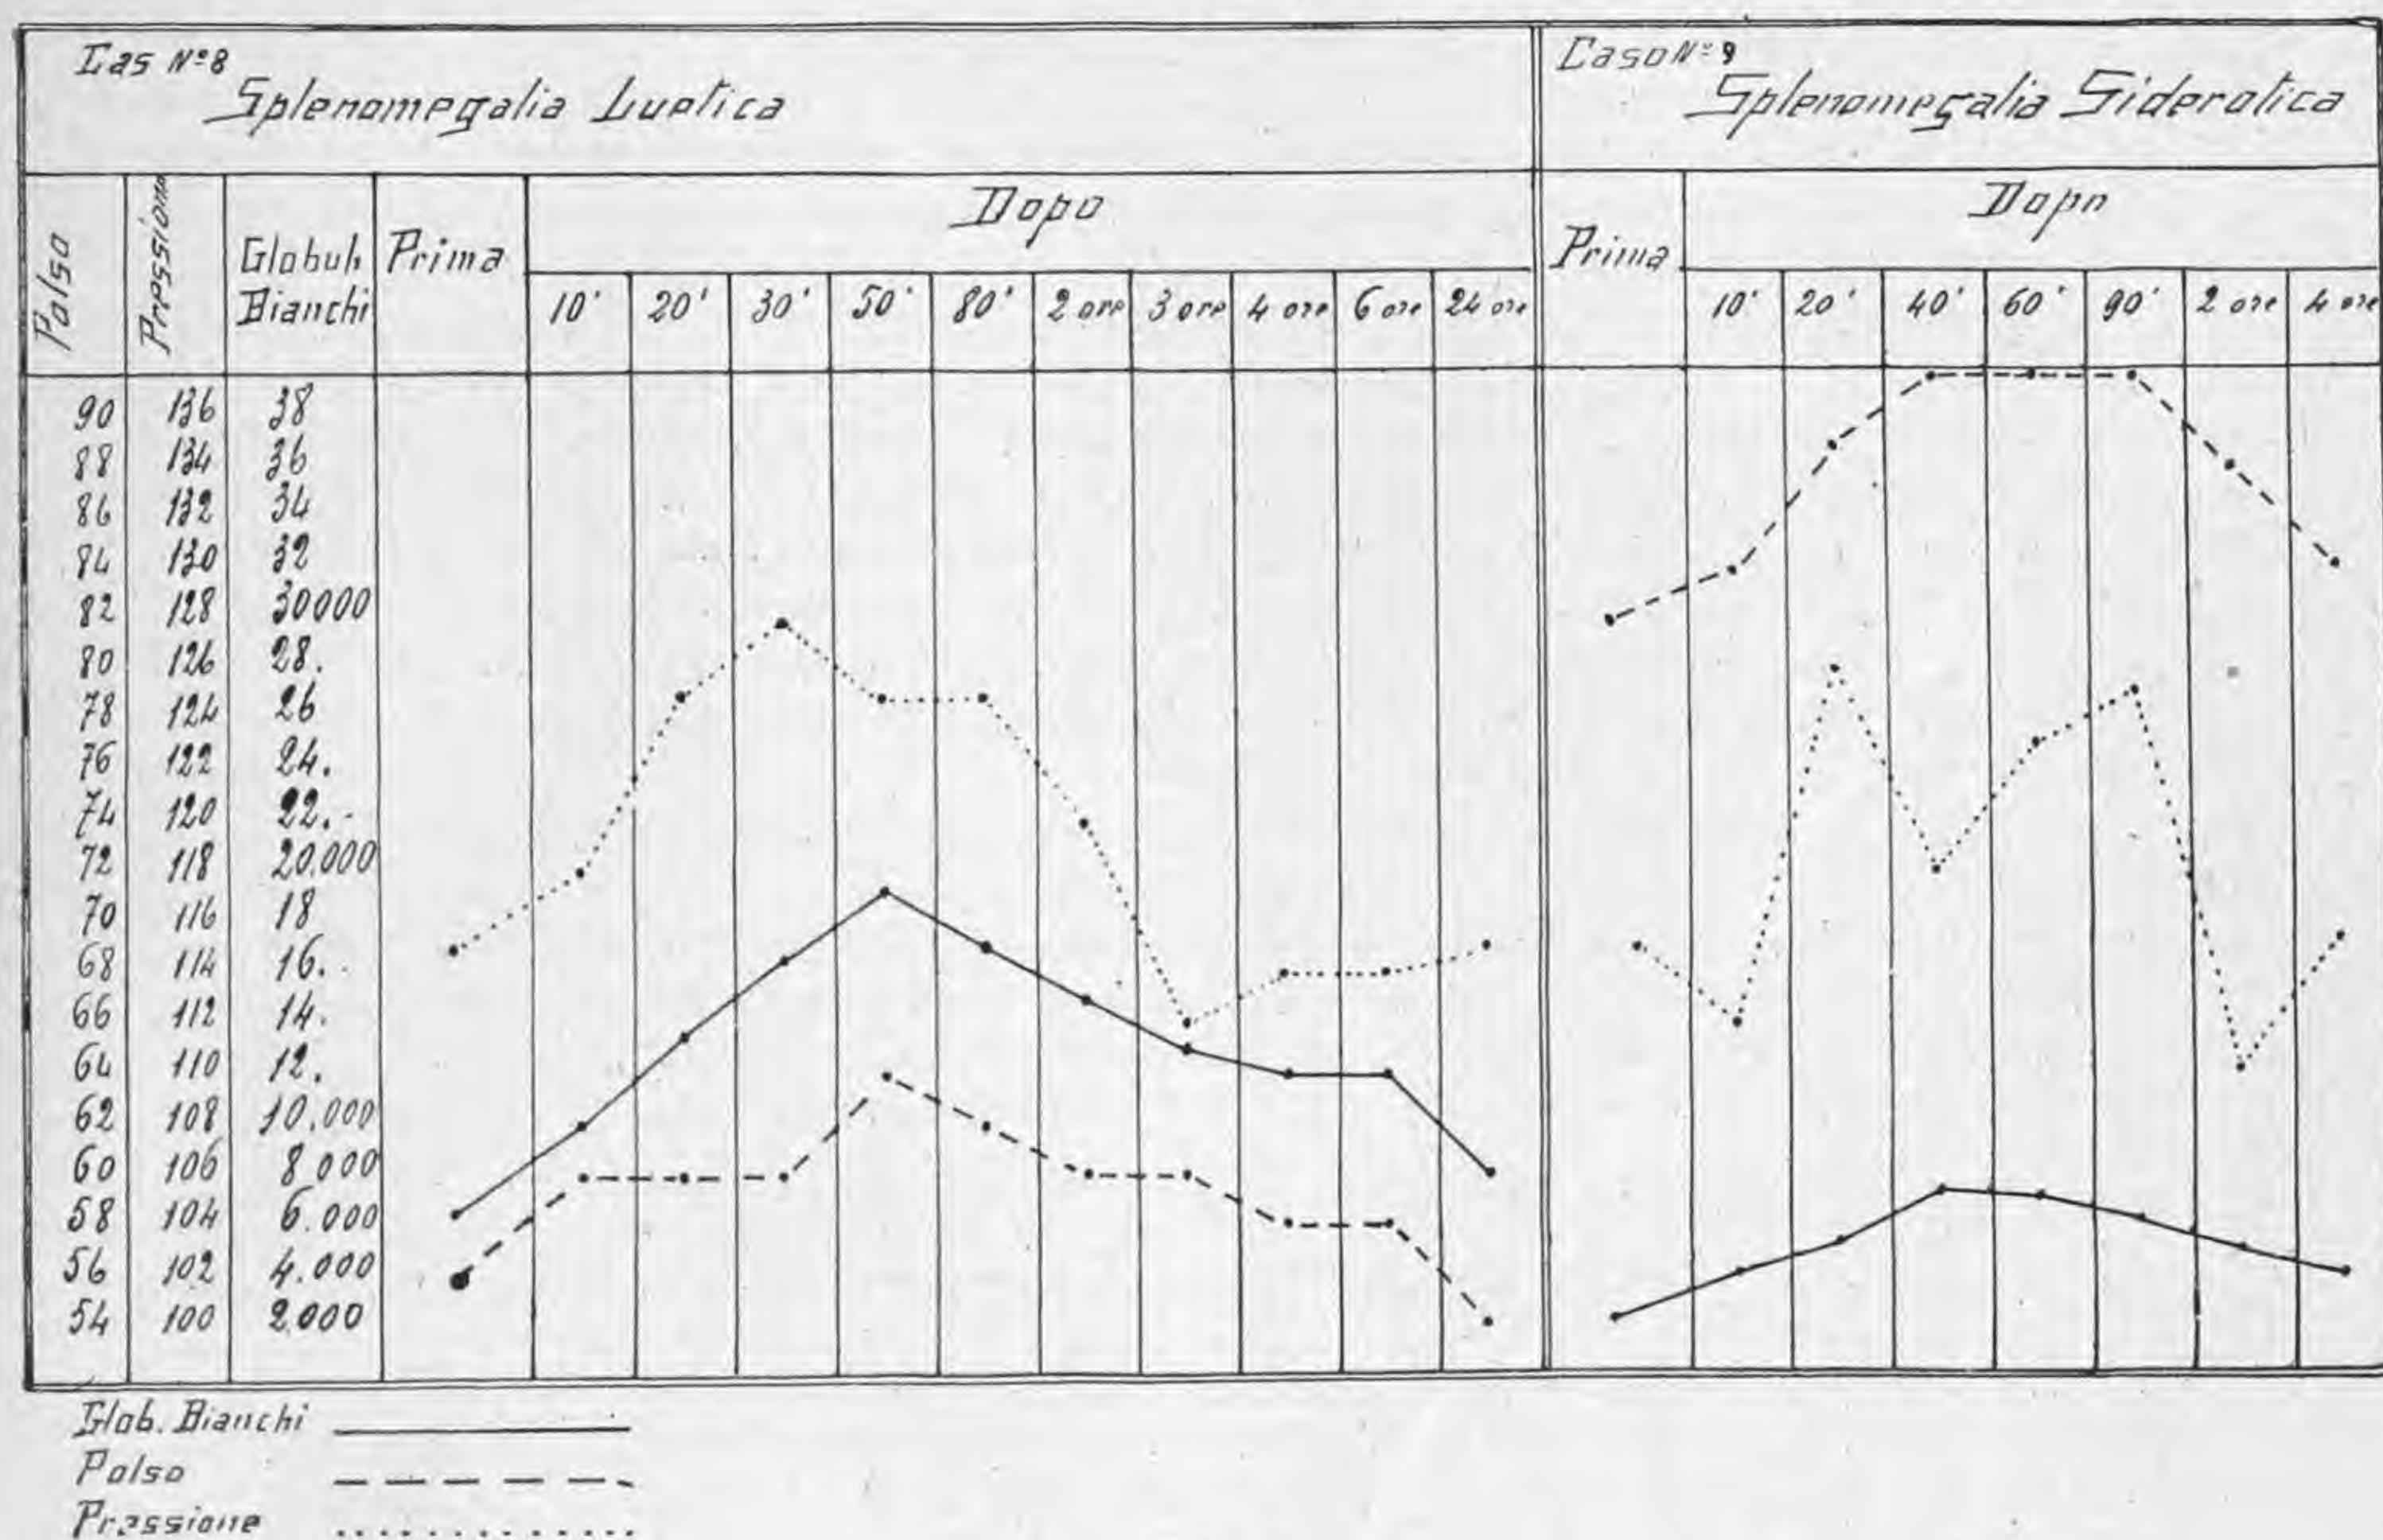 Cas Nº 8
Splenomegalia Luetica
Caso Nº 9
Splenomegalia Siderotica
Polso Pressione Globuli Bianchi Prima Dopo
10' 20' 30' 50' 80' 2 ore 3 ore 4 ore 6 ore 24 ore
Prima Dopo
10' 20' 40' 60' 90' 2 ore 4 ore
90 136 38
88 134 36
86 132 34
84 130 32
82 128 30000
80 126 28.
78 124 26
76 122 24.
74 120 22.-
72 118 20.000
70 116 18
68 114 16.
66 112 14.
64 110 12.
62 108 10.000
60 106 8 000
58 104 6.000
56 102 4.000
54 100 2.000
Glob. Bianchi
Polso
Pressione